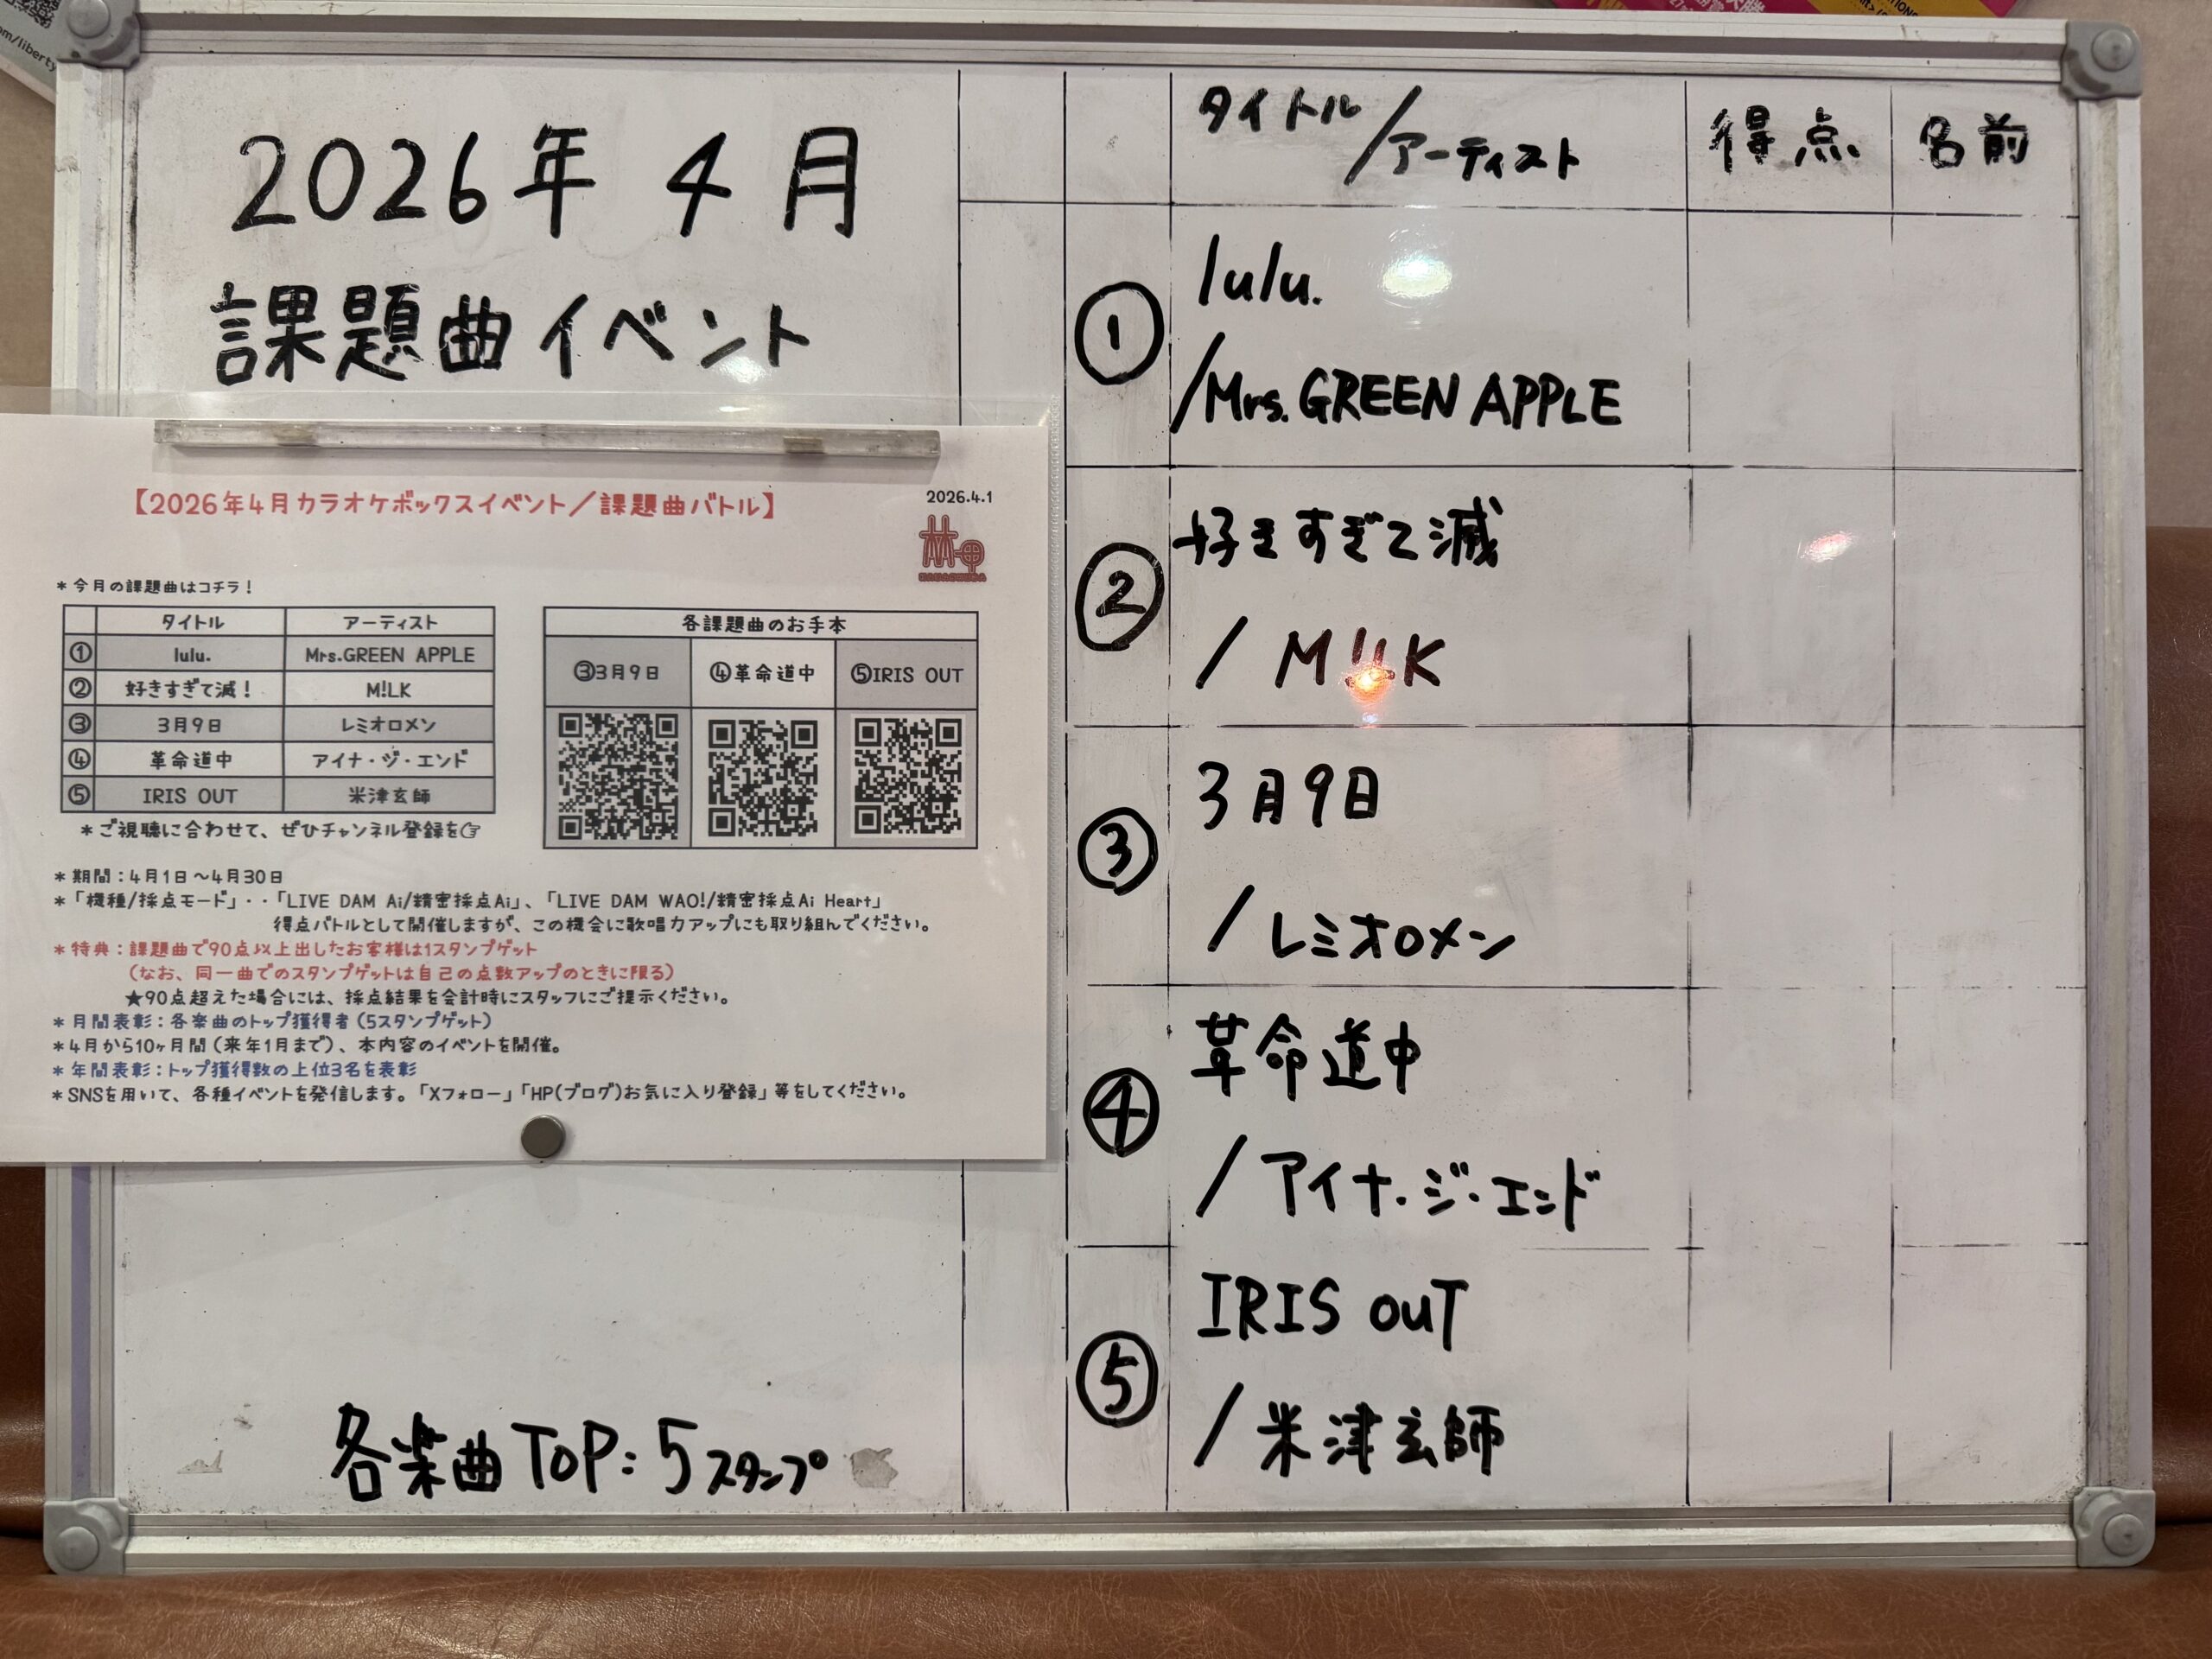 2026年 4月
課題曲イベント
【2026年4月カラオケボックスイベント／課題曲バトル】
2026.4.1
＊今月の課題曲はコチラ！
タイトル アーティスト
① lulu. Mrs.GREEN APPLE
② 好きすぎて滅！ M!LK
③ 3月9日 レミオロメン
④ 革命道中 アイナ・ジ・エンド
⑤ IRIS OUT 米津玄師
＊ご視聴に合わせて、ぜひチャンネル登録を☞
各課題曲のお手本
③3月9日 ④革命道中 ⑤IRIS OUT
＊期間：4月1日～4月30日
＊「機種/採点モード」・・「LIVE DAM Ai/精密採点Ai」、「LIVE DAM WAO!/精密採点Ai Heart」
得点バトルとして開催しますが、この機会に歌唱力アップにも取り組んでください。
＊特典：課題曲で90点以上出したお客様は1スタンプゲット
（なお、同一曲でのスタンプゲットは自己の点数アップのときに限る）
★90点超えた場合には、採点結果を会計時にスタッフにご提示ください。
＊月間表彰：各楽曲のトップ獲得者（5スタンプゲット）
＊4月から10ヶ月間（来年1月まで）、本内容のイベントを開催。
＊年間表彰：トップ獲得数の上位3名を表彰
＊SNSを用いて、各種イベントを発信します。「Xフォロー」「HP(ブログ)お気に入り登録」等をしてください。
各楽曲TOP：5スタンプ
タイトル/アーティスト 得点 名前
① lulu.
/Mrs.GREEN APPLE
② 好きすぎて滅
/ M!LK
③ 3月9日
/ レミオロメン
④ 革命道中
/ アイナ・ジ・エンド
⑤ IRIS OUT
/ 米津玄師